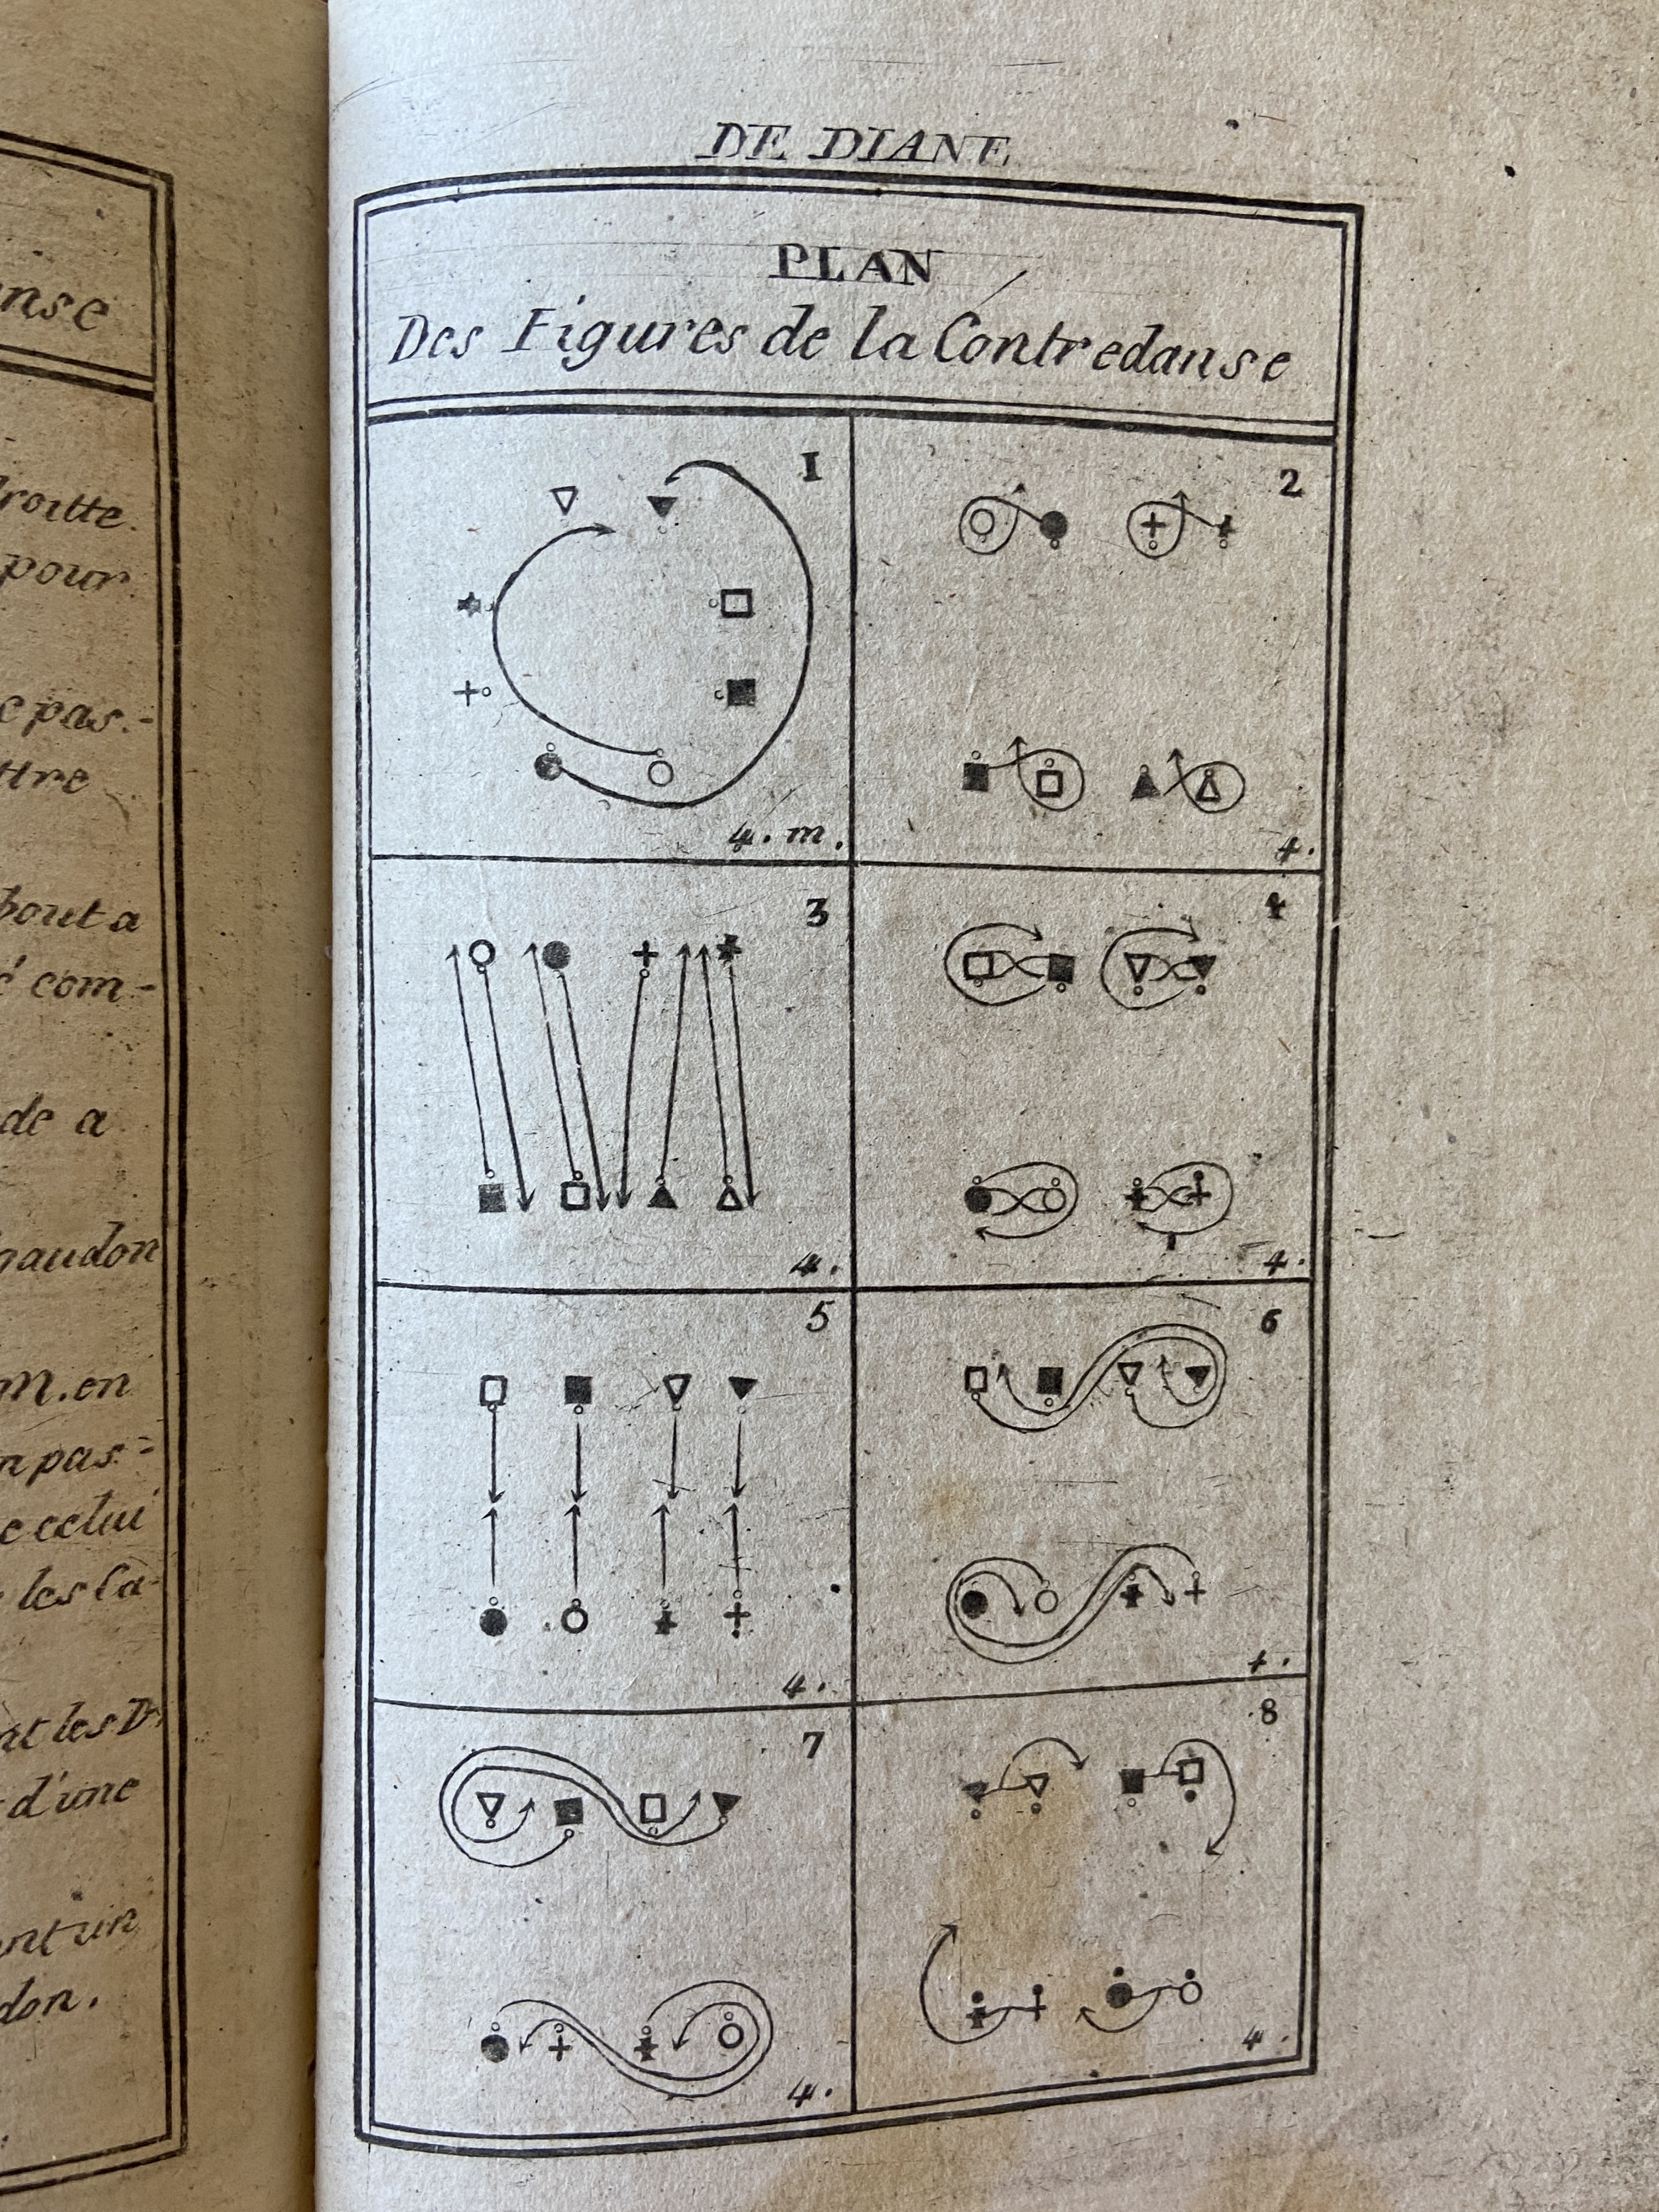 nse
pour
e pas.-
ttre
bout a
é com-
de a
gaudon
M. en
n pas=
e celui
les Ca-
nt les D.
d'une
nt un
don.
DE DIANE
PLAN
Des Figures de la Contredanse
1
4. m.
2
4.
3
4.
4
4.
5
4.
6
4.
7
4.
8
4.